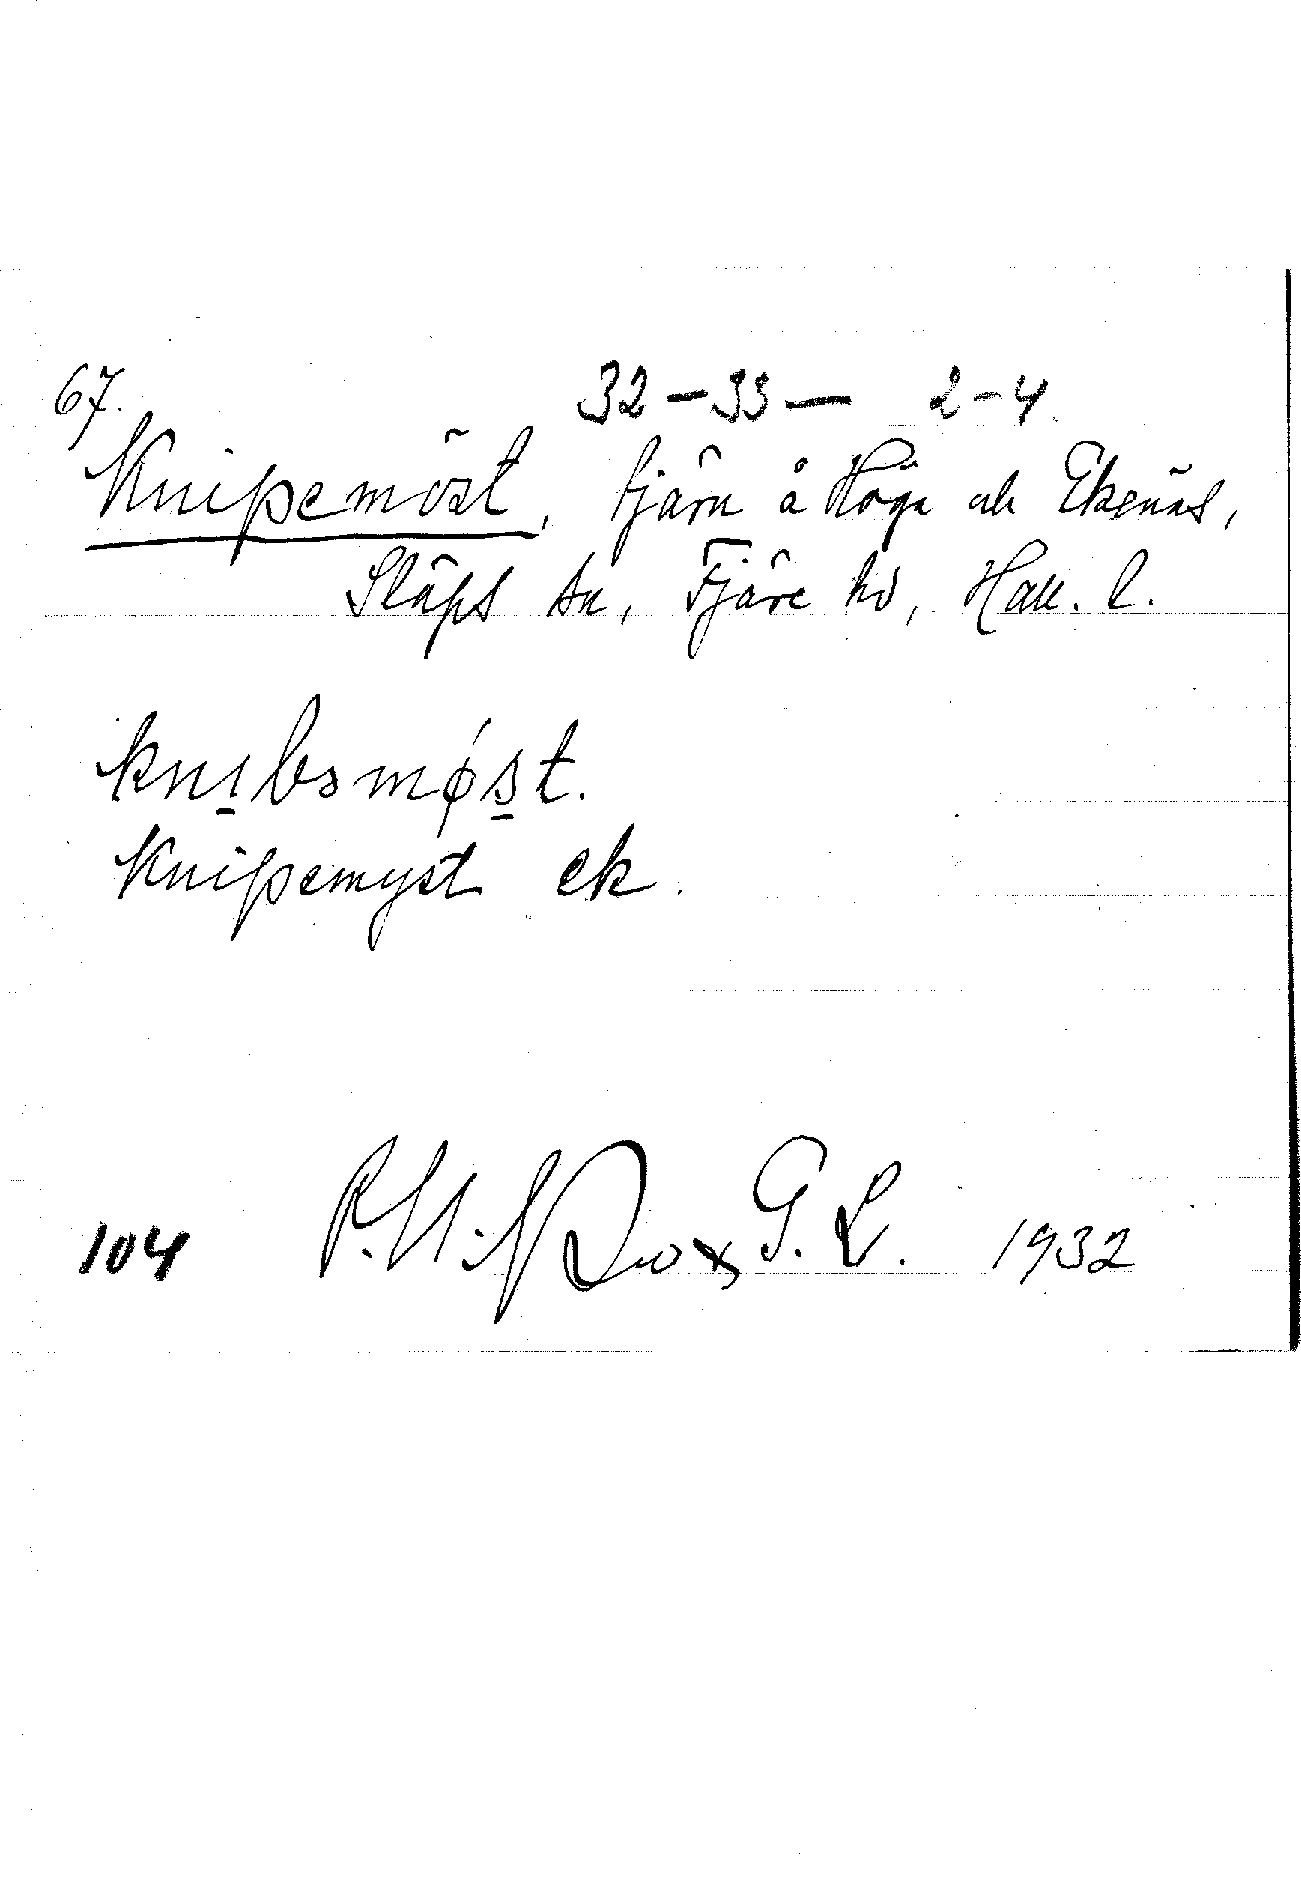 67. 32-33- 2-4
Knipemöst, tjärn å Höga och Ekenäs,
Släps sn, Fjäre hd, Hall. l.
knıbəmøst.
Knipemyst ek.
104 G. L. 1932